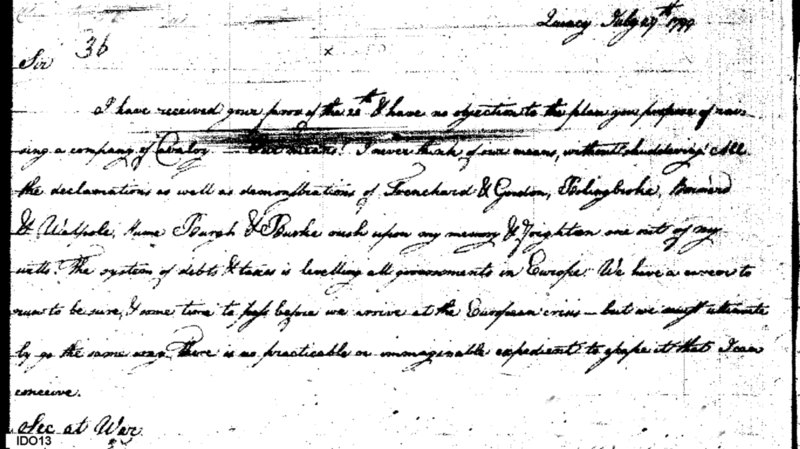 Quincy July 29th 1799
36
Sir
I have received your favor of the 24th & have no objection to the plan you propose of rai
sing a company of Cavalry — Our means! I never think of our means, without shuddering. All
the declamations as well as demonstrations of Trenchard & Gordon, Bolingbroke, Barnard
& Walpole, Hume Burgh & Burke rush upon my memory & frighten one out of my
wits. The system of debts & taxes is levelling all governments in Europe. We have a career to
run to be sure, & some time to pass before we arrive at the European crisis — but we must ultimate
ly go the same way. There is no practicable or immaginable expedient to escape it that I can
conceive.
Sec at War
IDO13